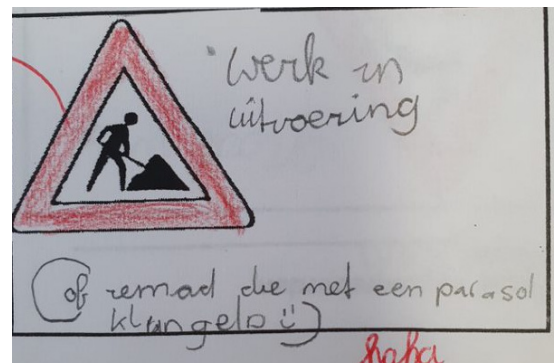 werk in
uitvoering
(of iemand die met een parasol
klungelt :))
haha